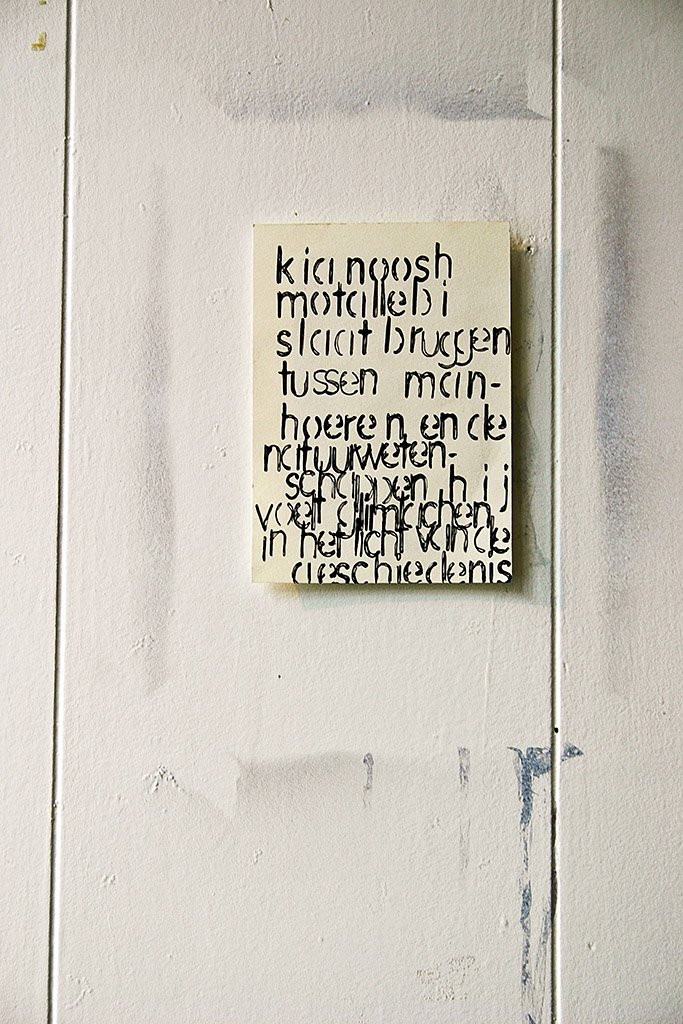 kianoosh
motallebi
slaat bruggen
tussen man-
hoeren en de
natuurweten-
schappen hij
voelt glimlachen
in het licht van de
geschiedenis